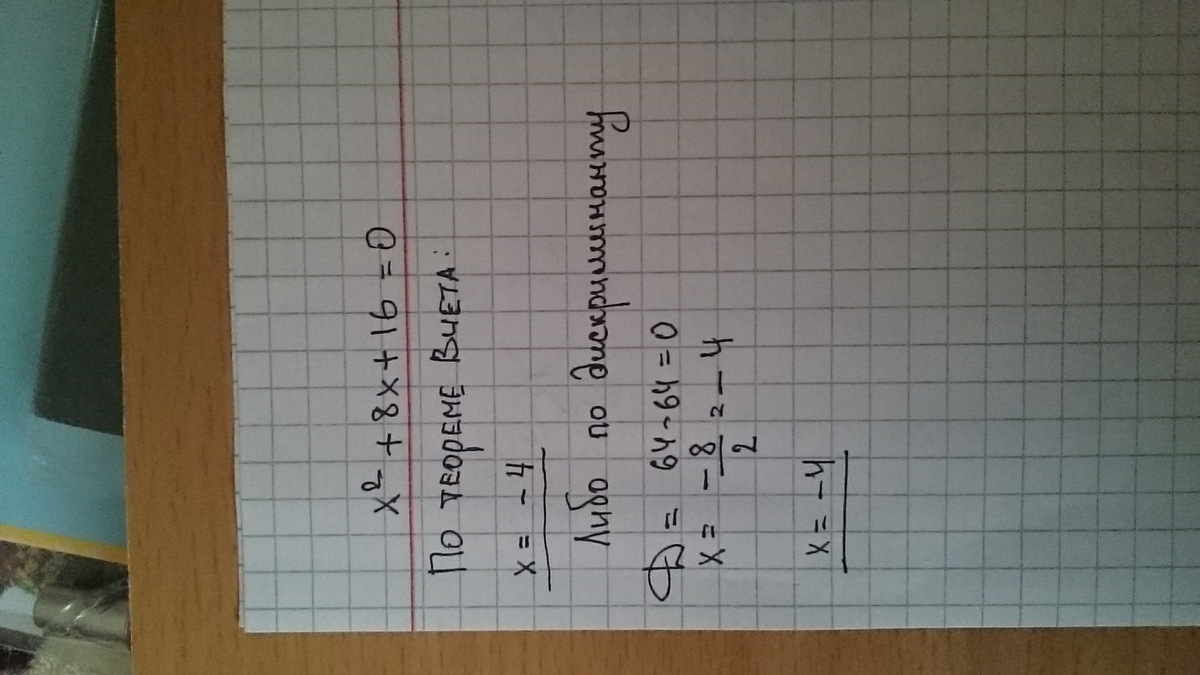 x² + 8x + 16 = 0
По теореме Виета:
x = -4
Либо по дискриминанту
D = 64 - 64 = 0
x = -8/2 = -4
x = -4